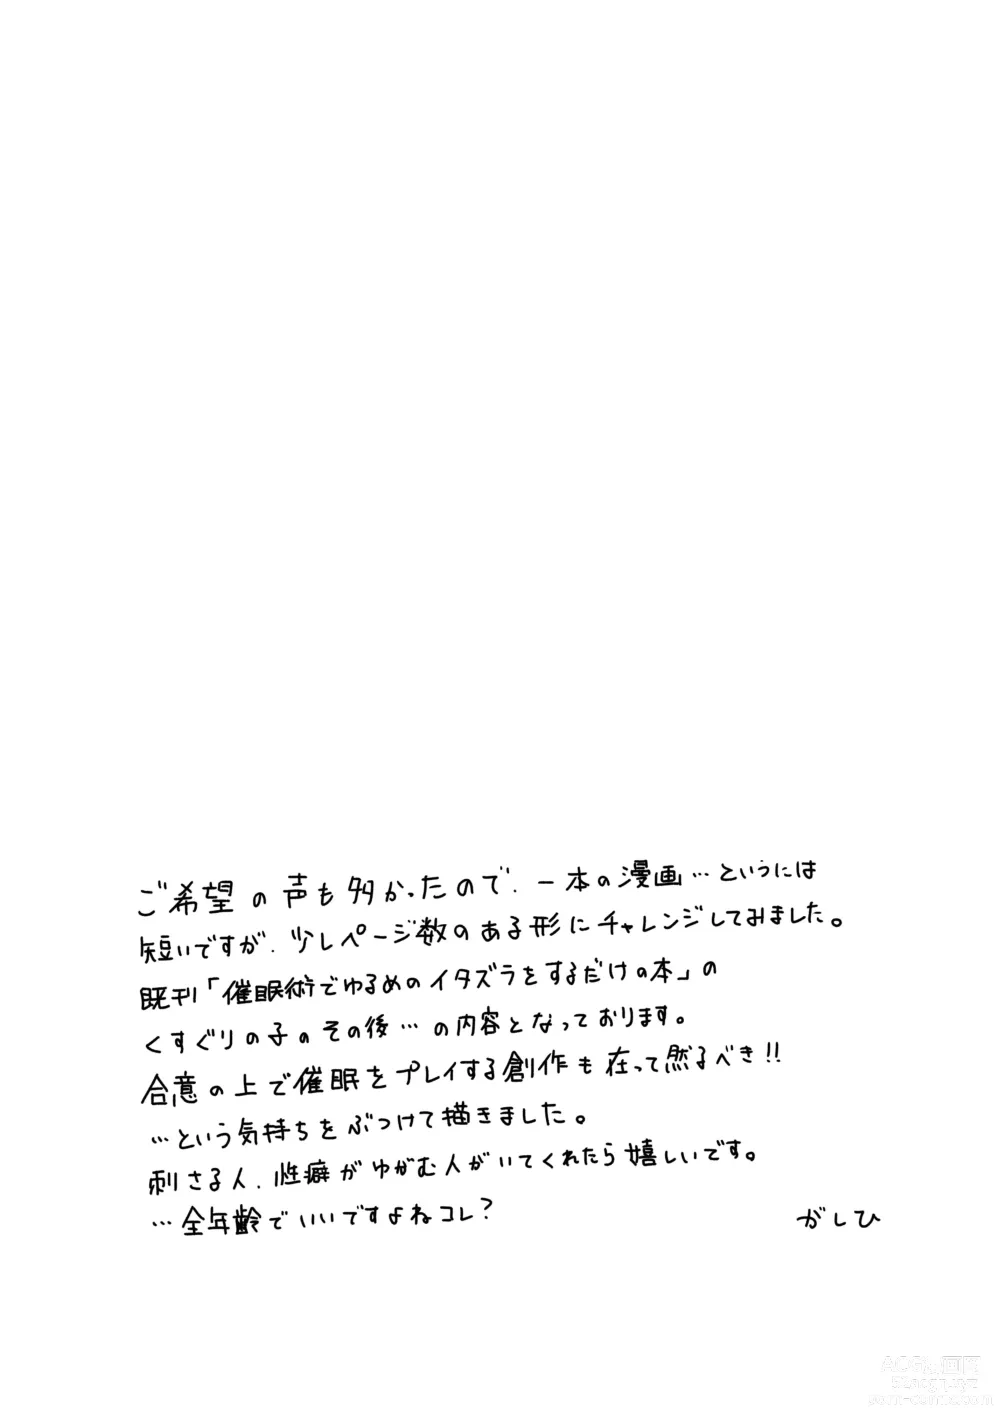 ご希望の声も多かったので、一本の漫画…というには
短いですが、少しページ数のある形にチャレンジしてみました。
既刊「催眠術でゆるめのイタズラをするだけの本」の
くすぐりの子のその後…の内容となっております。
合意の上で催眠をプレイする創作も在って然るべき!!
…という気持ちをぶつけて描きました。
刺さる人、性癖がゆがむ人がいてくれたら嬉しいです。
…全年齢でいいですよねコレ?
がしひ